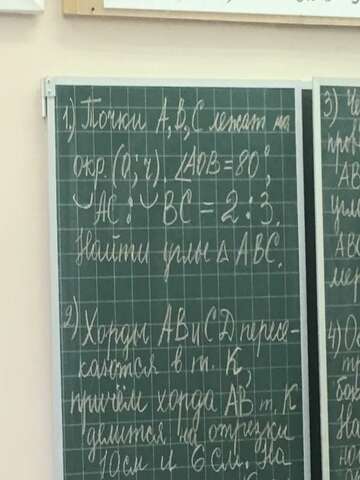 1) Точки A, B, C лежат на
окр. (O; r). ∠AOB = 80°,
◡AC : ◡BC = 2 : 3.
Найти углы △ ABC.
2) Хорды AB и CD пересе-
каются в т. K,
причём хорда AB т. K
делится на отрезки
10см и 6см. На
3)
про
AB
угл
ABC
4)
бок
На